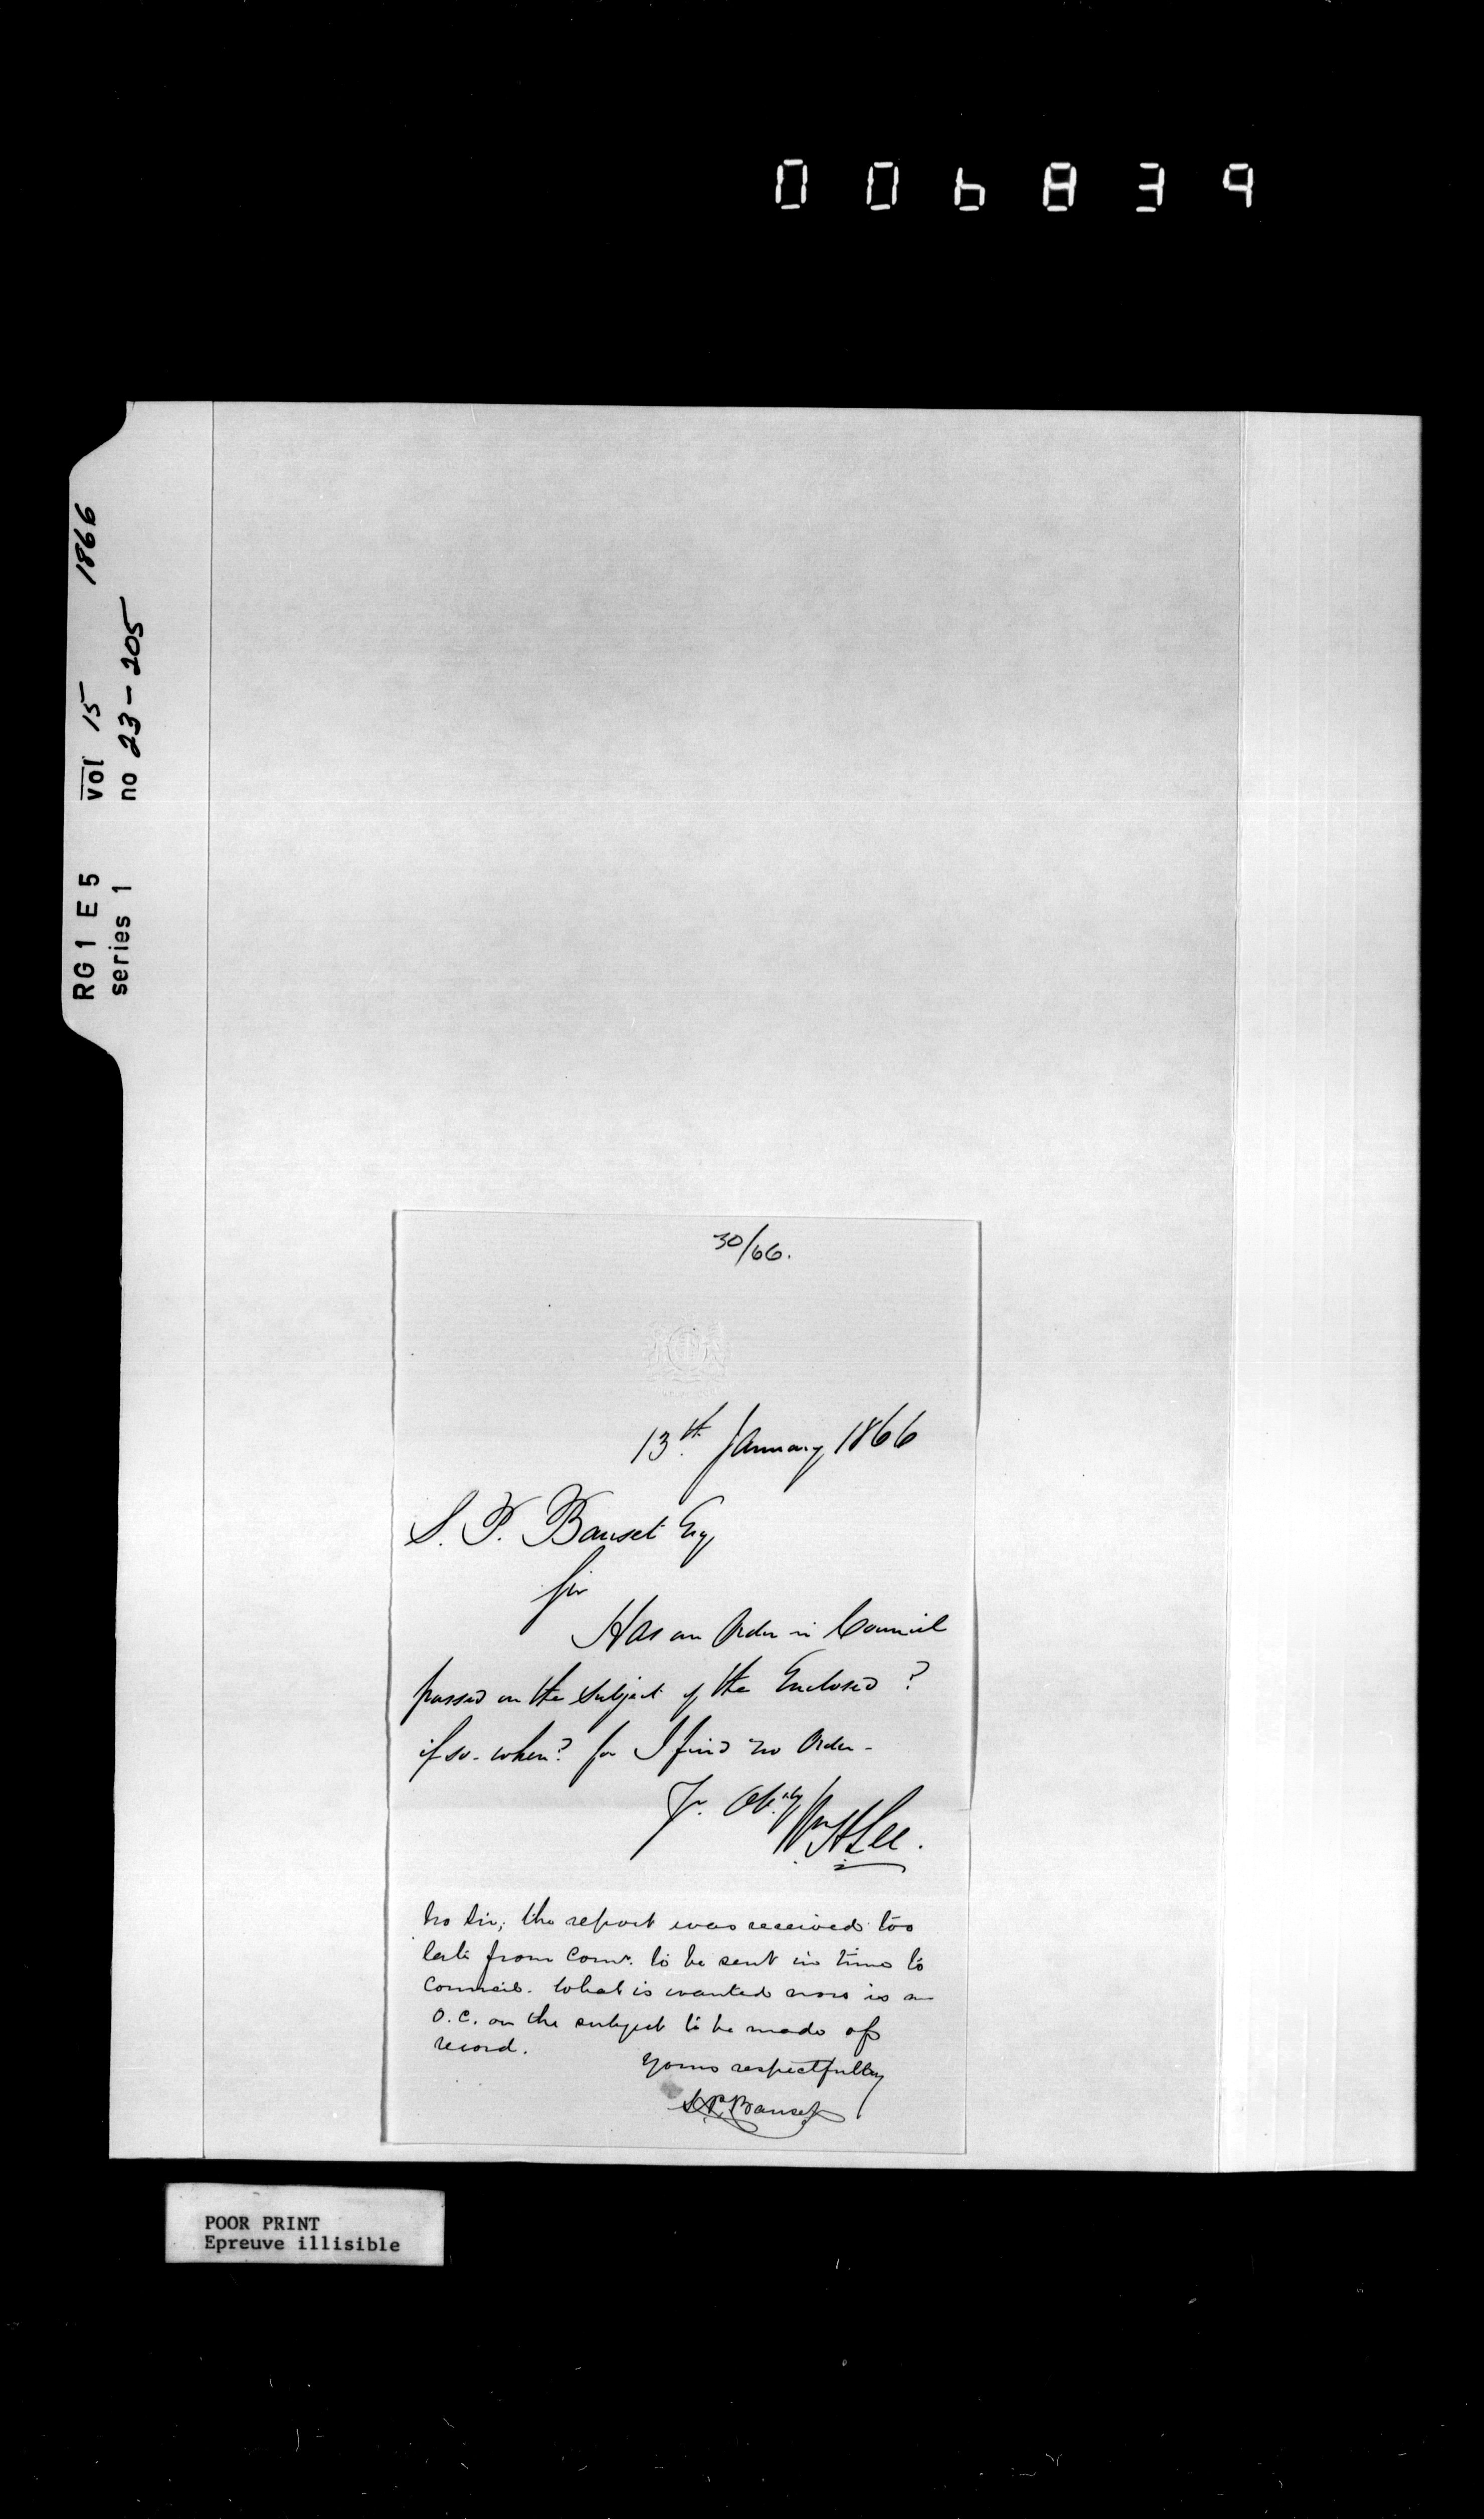 006839
RG 1 E 5 vol 15 1866
series 1 no 23-205
30/66.
13th January 1866
S. P. Bauset Esq
Sir
Has an Order in Council
passed on the subject of the Enclosed?
if so - when? for I find no Order -
Yr.
Wm H Lee.
No Sir; the report was received too
late from Comr. to be sent in time to
Council. What is wanted now is an
O.C. on the subject to be made of
record.
Yours respectfully
S.P. Bauset
POOR PRINT
Epreuve illisible